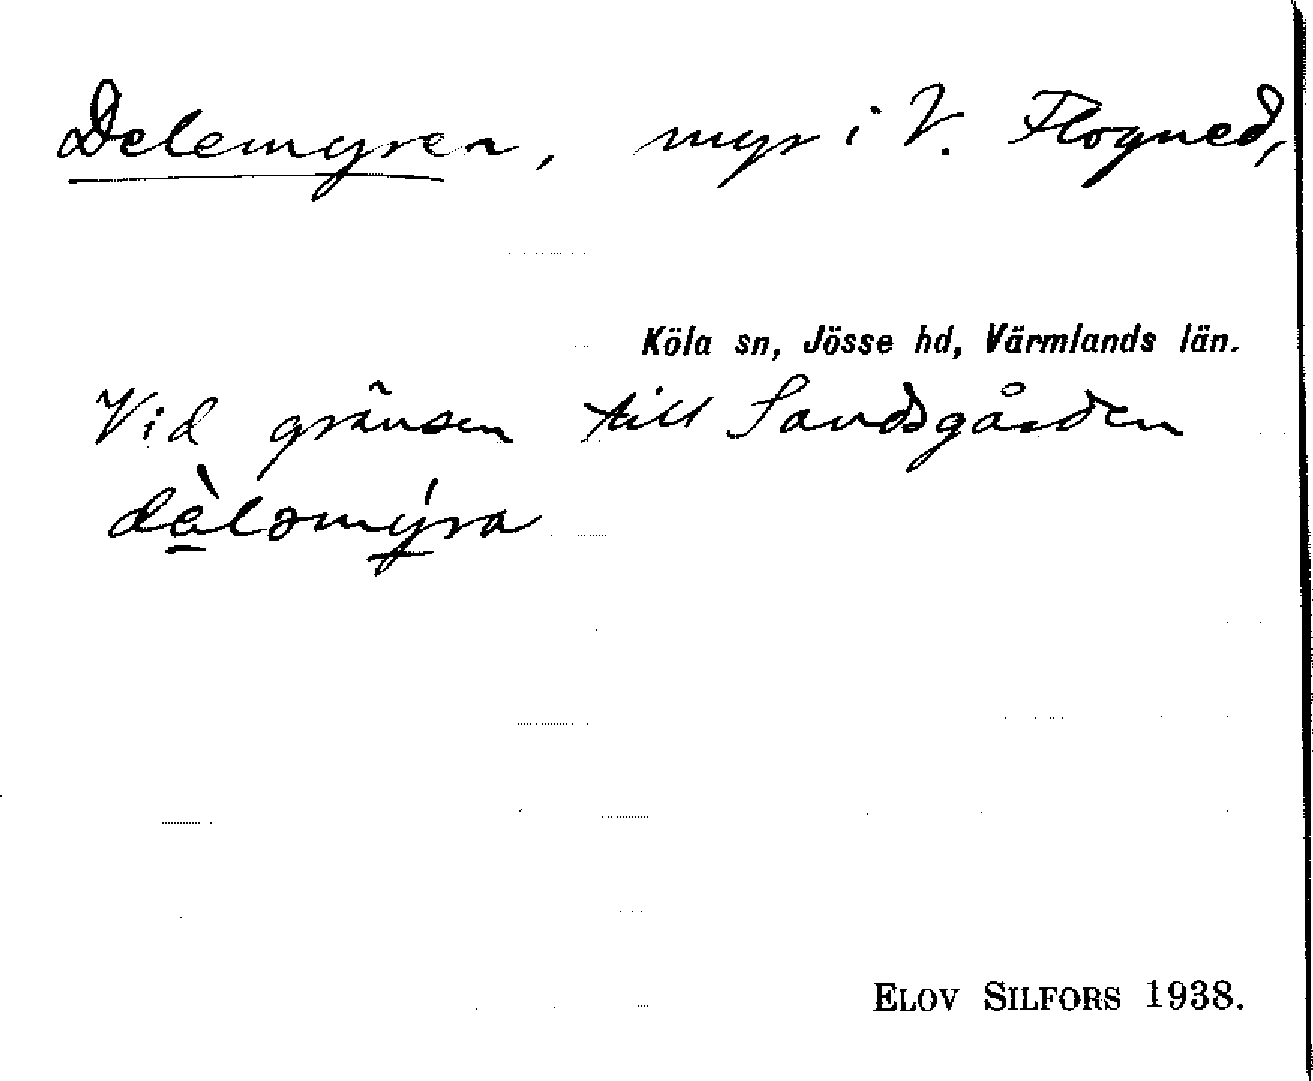 Delemyren, myr i V. Flogned,
Köla sn, Jösse hd, Värmlands län.
Vid gränsen till Sandsgården
dèləmýra
ELOV SILFORS 1938.